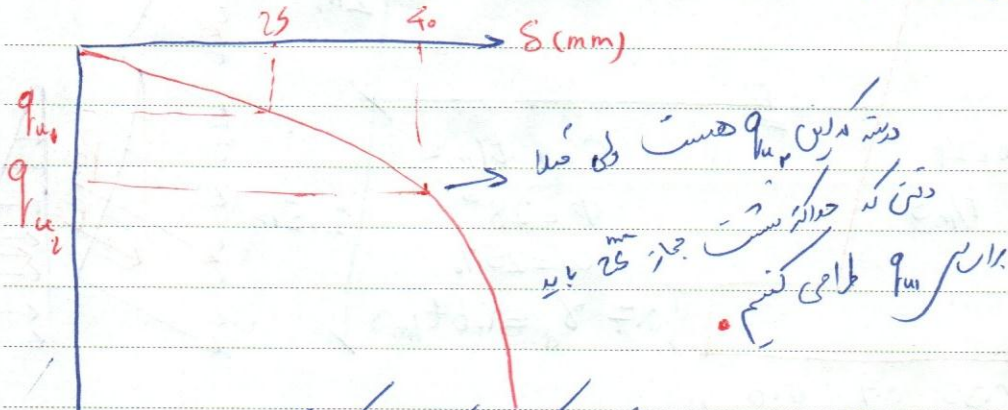 25 40
δ (mm)
qu1
qu2
درسته مدلش qu2 هست ولی مثلا
وقتی که حداکثر نشست مجاز 25 mm باید
براساس qu1 طراحی کنیم.